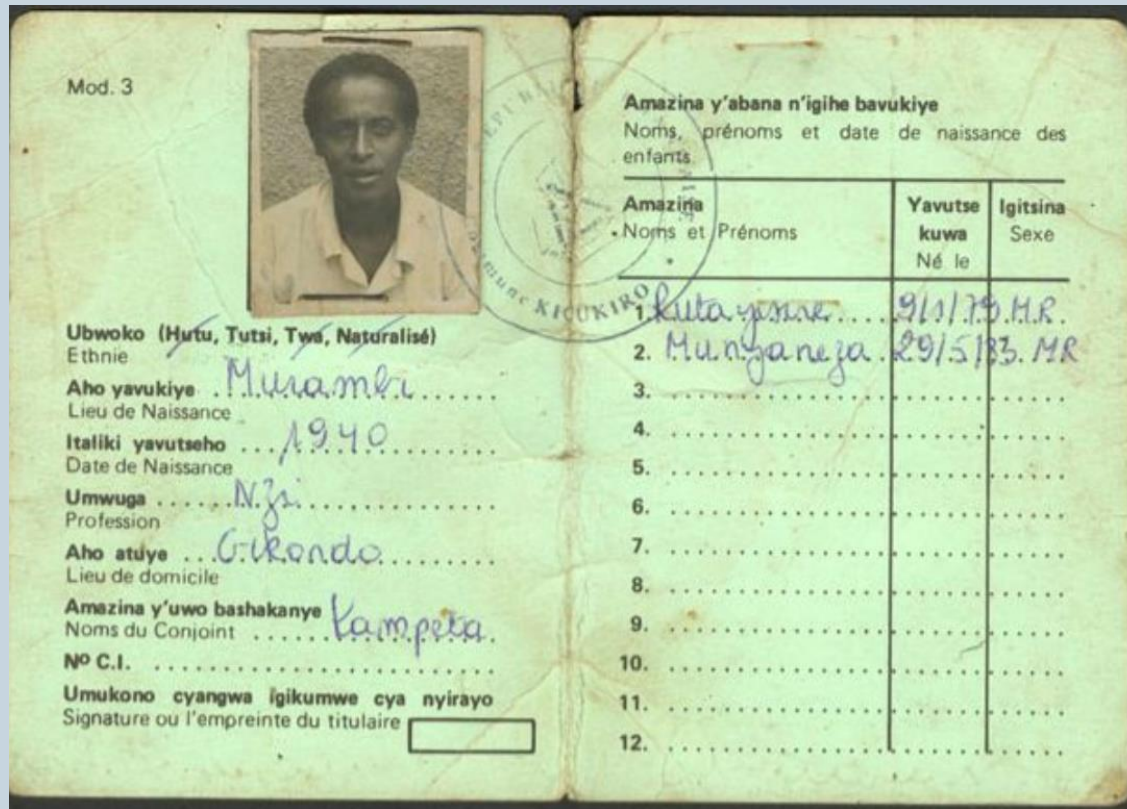 Mod. 3
Ubwoko (Hutu, Tutsi, Twa, Naturalisé)
Ethnie
Aho yavukiye Murambi
Lieu de Naissance
Italiki yavutseho 1940
Date de Naissance
Umwuga
Profession
Aho atuye Gikondo
Lieu de domicile
Amazina y'uwo bashakanye
Noms du Conjoint Kampeta
Nº C.I.
Umukono cyangwa igikumwe cya nyirayo
Signature ou l'empreinte du titulaire
Commune KICUKIRO
Amazina y'abana n'igihe bavukiye
Noms, prénoms et date de naissance des
enfants
Amazina Yavutse Igitsina
Noms et Prénoms kuwa Sexe
Né le
1. 9/1/79 MR.
2. Munyaneza 29/5/83. MR
3.
4.
5.
6.
7.
8.
9.
10.
11.
12.